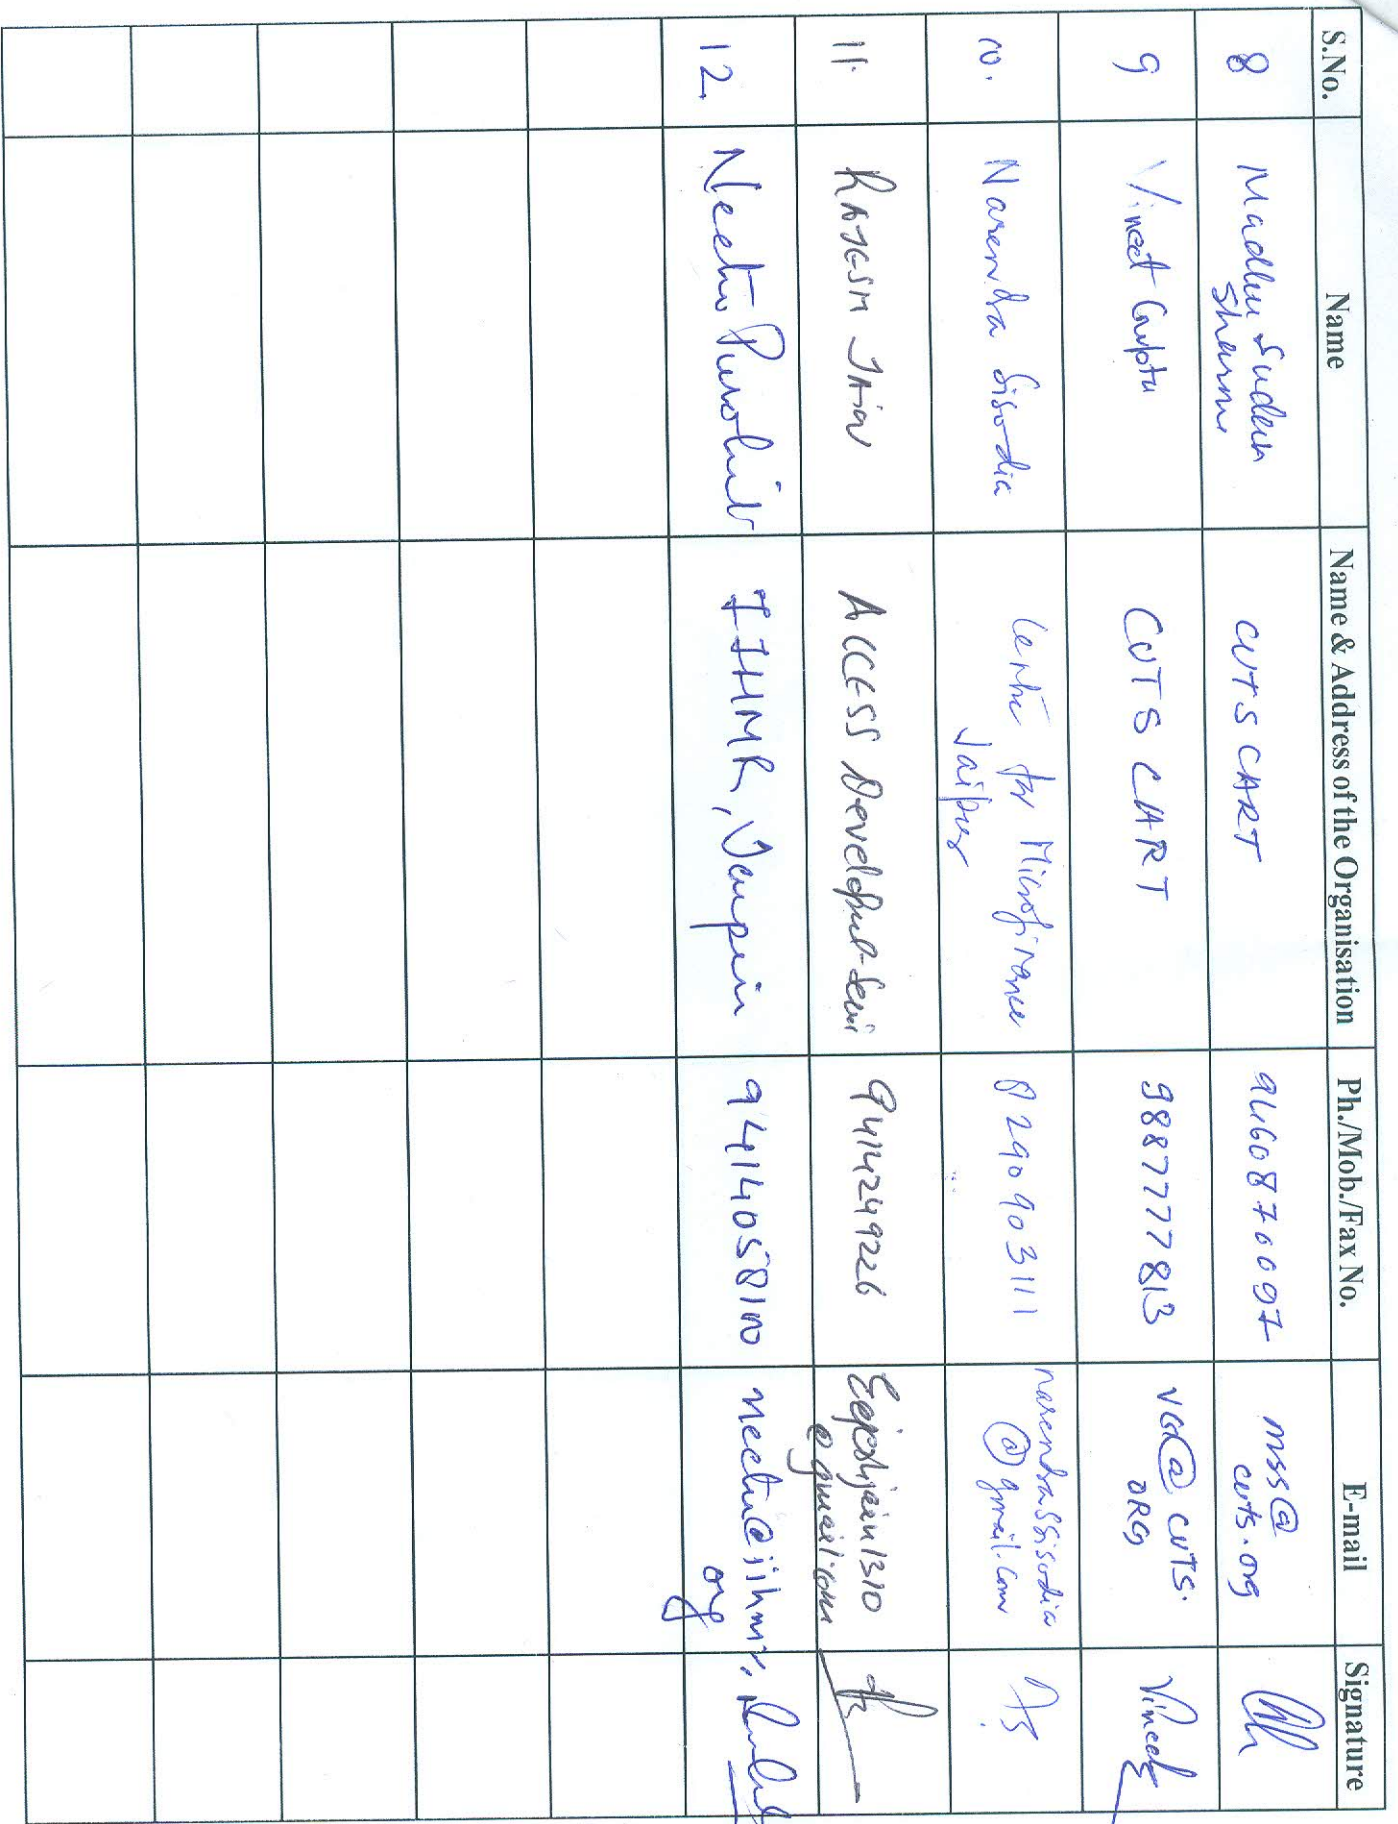 S.No. Name Name & Address of the Organisation Ph./Mob./Fax No. E-mail Signature
8 Madhu Sudan CUTS CART 9460870097 mss@
Sharma cuts.org
9 Vineet Gupta CUTS CART 9887777813 VG@CUTS.
ORG
10. Narendra Sisodia Centre for Microfinance 8290903111 narendrassisodia
Jaipur @gmail.com
11. RAJESH JAIN ACCESS Development 9414249226
@gmail.com
12. Neetu Purohit IIHMR, Jaipur 9414058100 neetu@iihmr.
org